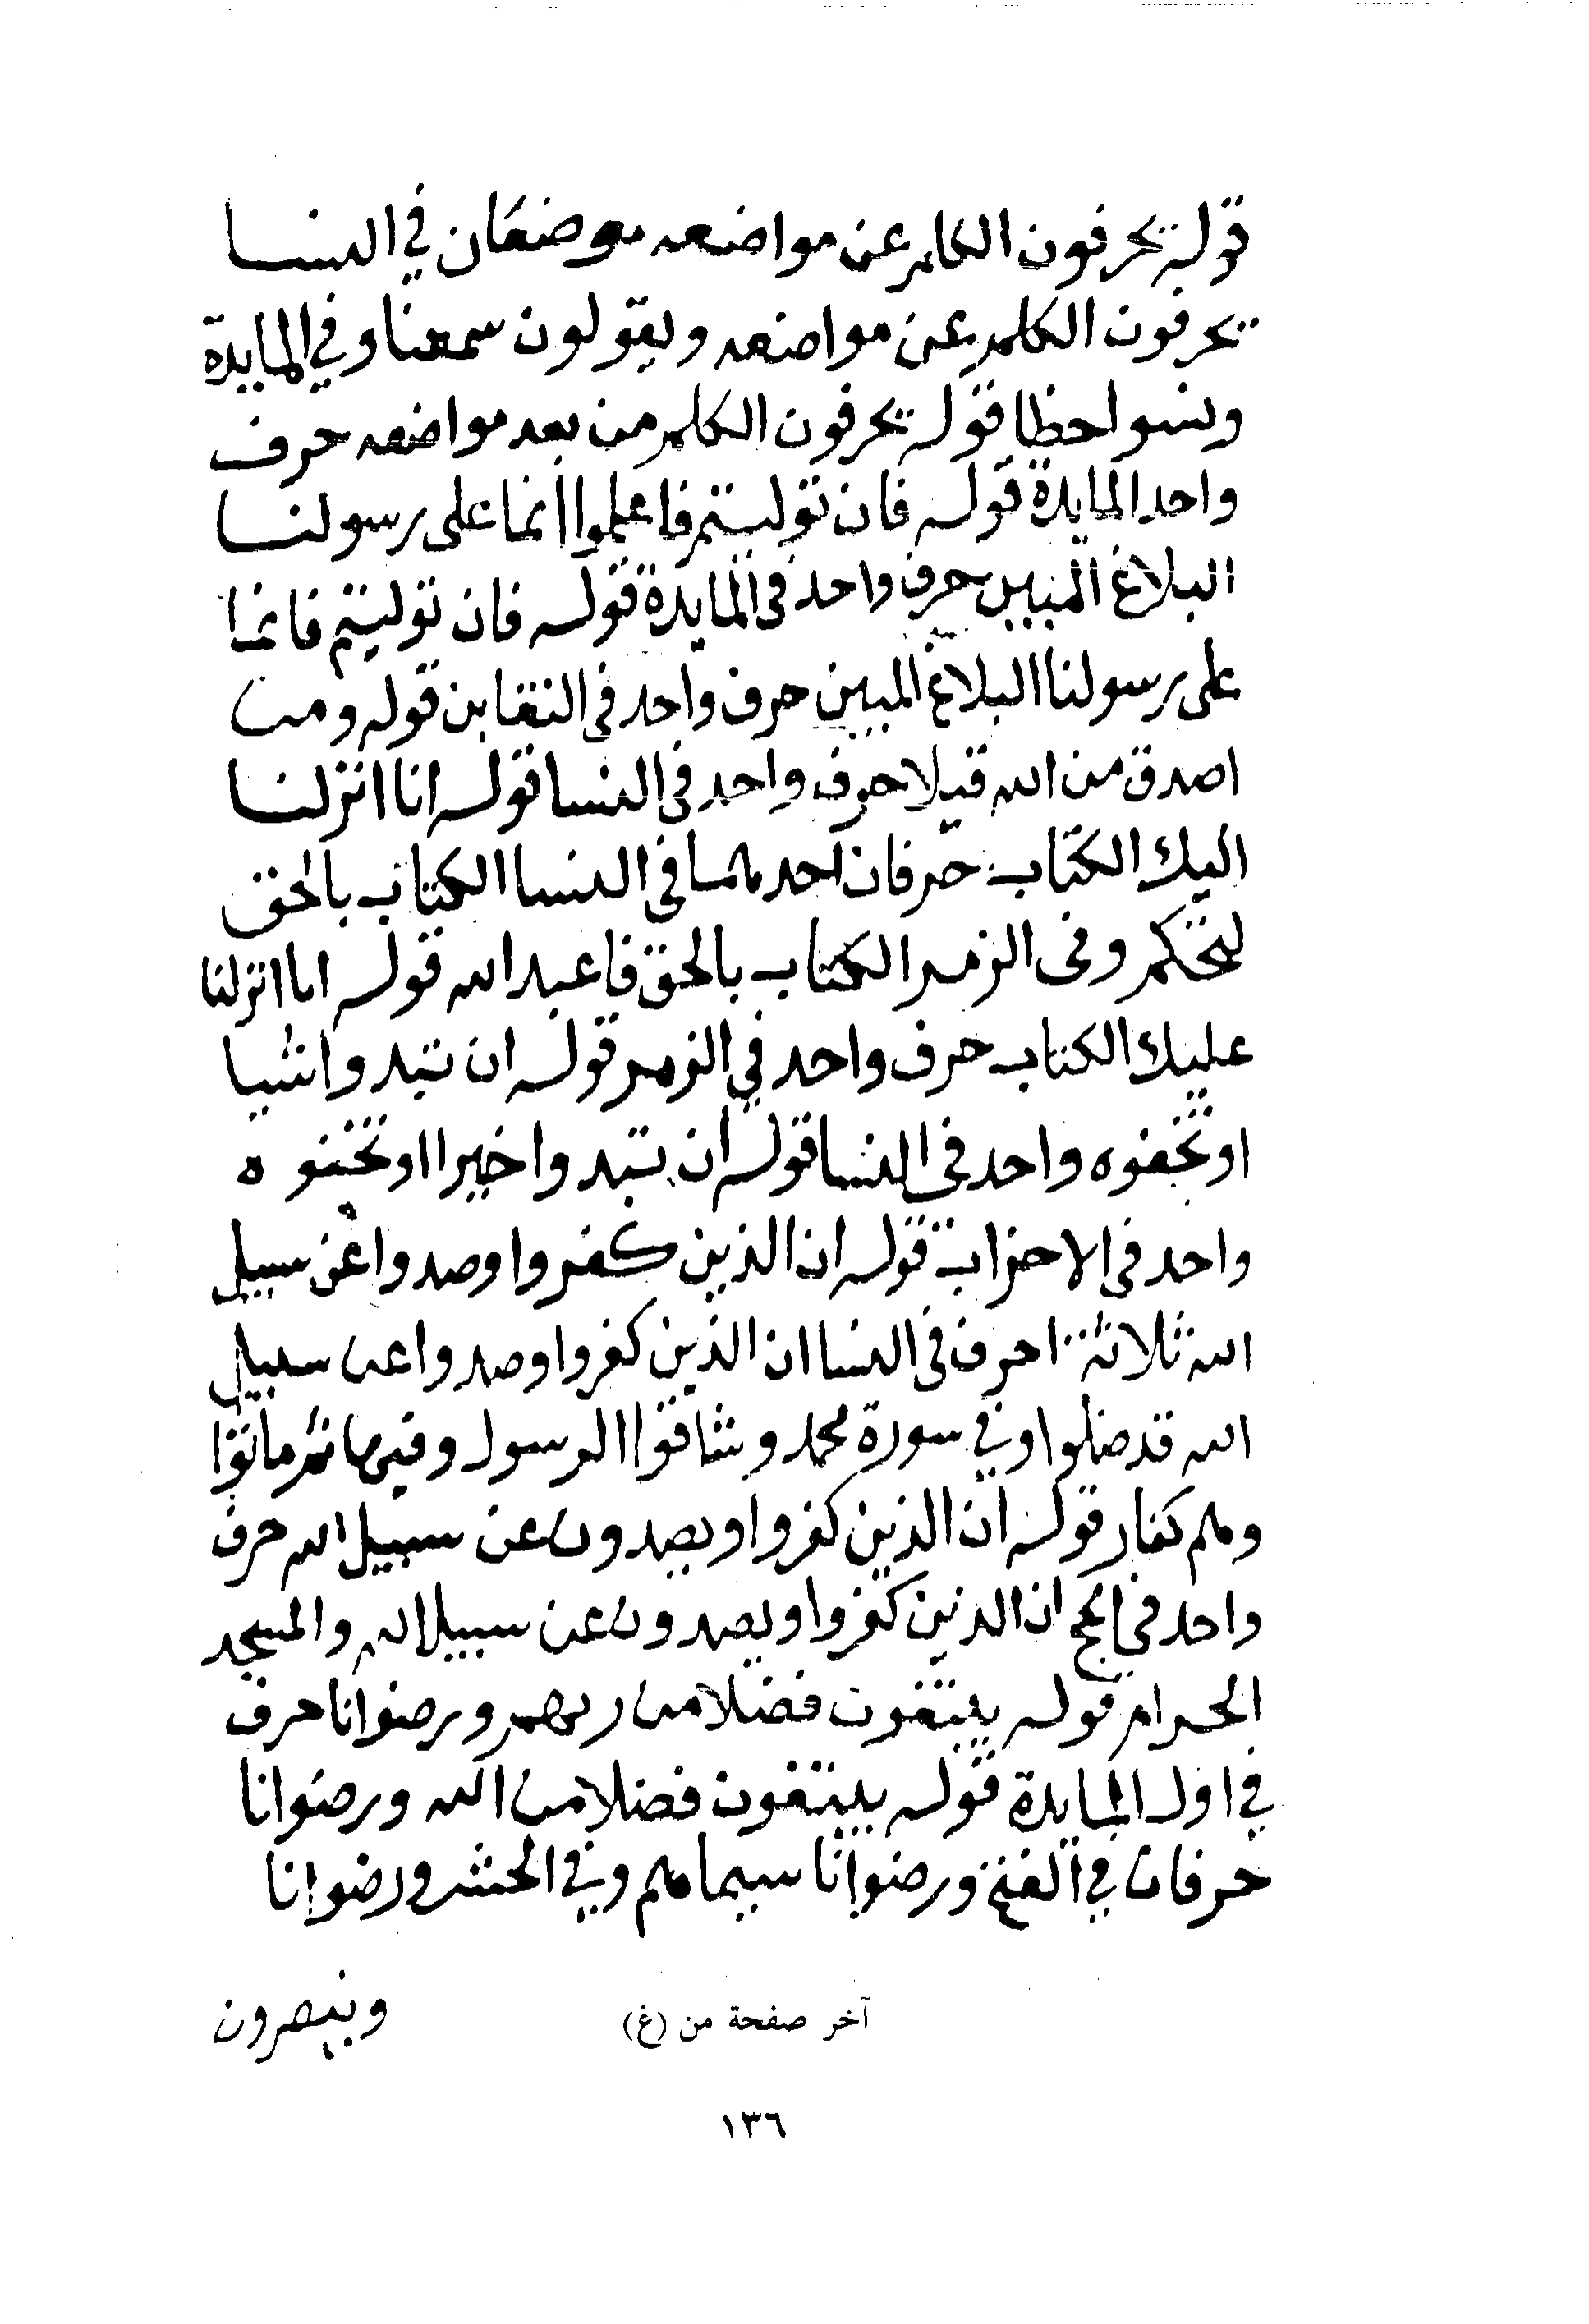 قوله يحرفون الكلم عن مواضعه موضعان في النسا
يحرفون الكلم عن مواضعه ويقولون سمعنا وفي المايدة
ونسوا حظا قوله يحرفون الكلم من بعد مواضعه حرف
واحد المايدة قوله فان توليتم فاعلموا انما على رسولنا
البلاغ المبين حرف واحد في المايدة قوله فان توليتم فانما
على رسولنا البلاغ المبين حرف واحد في التغابن قوله ومن
اصدق من الله قيلا حرف واحد في النسا قوله انا انزلنا
اليك الكتاب حرفان احدهما في النسا الكتاب بالحق
لتحكم وفي الزمر الكتاب بالحق فاعبد الله قوله انا انزلنا
عليك الكتاب حرف واحد في الزمر قوله ان تبدوا شيا
او تخفوه واحد في النسا قوله ان تبدوا خيرا او تخفوه
واحد في الاحزاب قوله ان الذين كفروا وصدوا عن سبيل
الله ثلاثة احرف في النسا ان الذين كفروا وصدوا عن سبيل
الله قد ضلوا وفي سورة محمد وشاقوا الرسول وفيها ثم ماتوا
وهم كفار قوله ان الذين كفروا ويصدون عن سبيل الله حرف
واحد في الحج ان الذين كفروا ويصدون عن سبيل الله والمسجد
الحرام قوله يبتغون فضلا من ربهم ورضوانا حرف
في اول المايدة قوله يبتغون فضلا من الله ورضوانا
حرفان في الفتح ورضوانا سيماهم وفي الحشر ورضوانا
وينصرون
آخر صفحة من (غ)
١٣٦